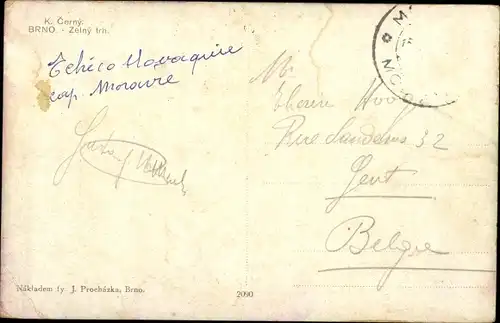 K. Černý:
BRNO. - Zelný trh.
Tchéco Slovaquie
cap. Moravie
Mr
Rue Sanderus 32
Gent
Belgie
Nákladem fy. J. Procházka, Brno.
2090